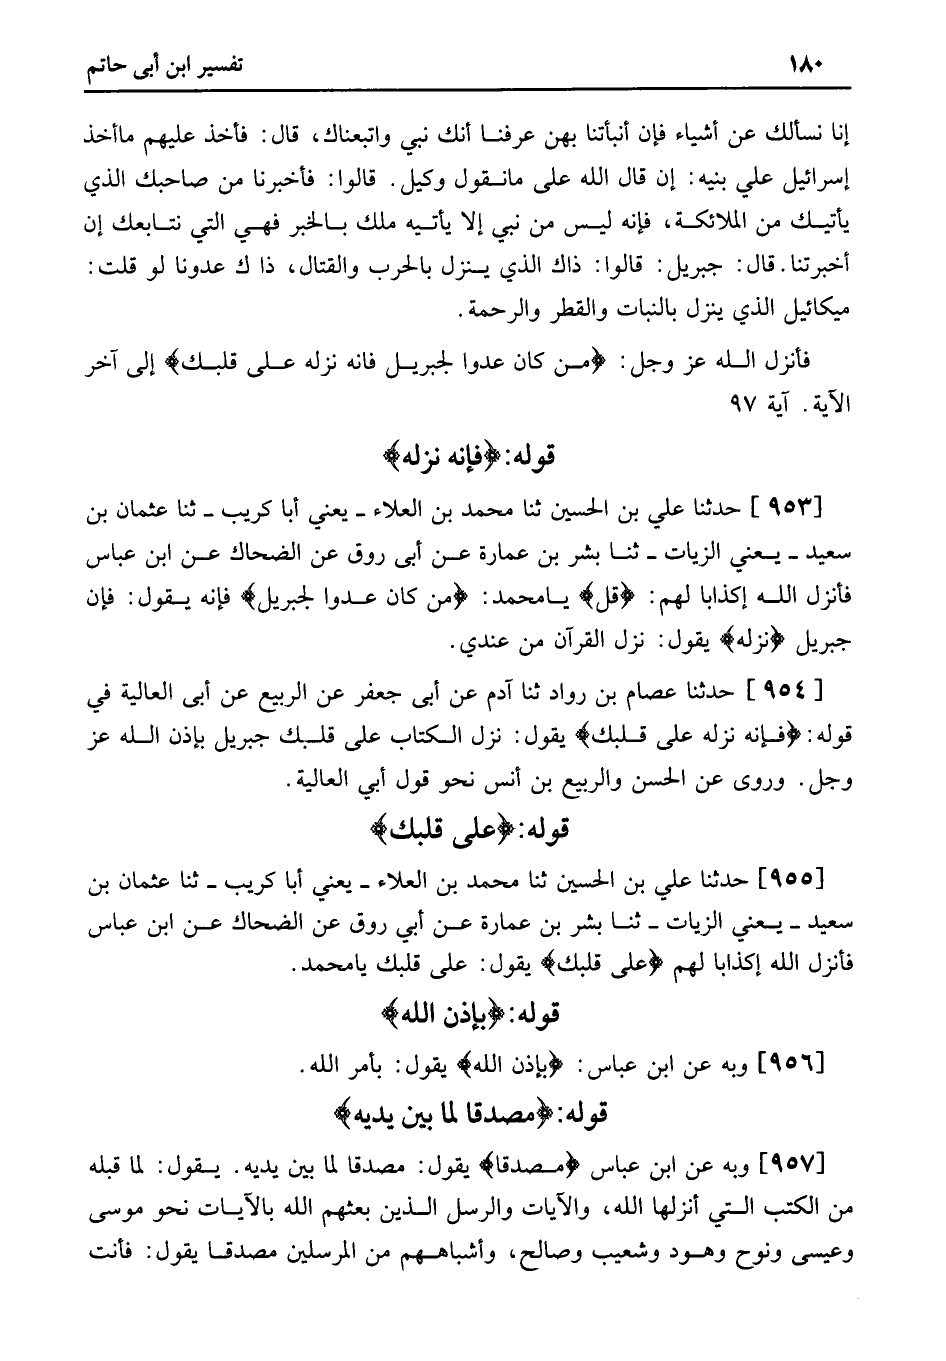 ١٨٠ تفسير ابن أبى حاتم
إنا نسألك عن أشياء فإن أنبأتنا بهن عرفنا أنك نبي واتبعناك، قال: فأخذ عليهم ماأخذ
إسرائيل علي بنيه: إن قال الله على مانقول وكيل. قالوا: فأخبرنا من صاحبك الذي
يأتيك من الملائكة، فإنه ليس من نبي إلا يأتيه ملك بالخبر فهي التي نتابعك إن
أخبرتنا. قال: جبريل: قالوا: ذاك الذي ينزل بالحرب والقتال، ذا ك عدونا لو قلت:
ميكائيل الذي ينزل بالنبات والقطر والرحمة.
فأنزل الله عز وجل: ﴿من كان عدوا لجبريل فانه نزله على قلبك﴾ إلى آخر
الآية. آية ٩٧
قوله: ﴿فإنه نزله﴾
[٩٥٣] حدثنا علي بن الحسين ثنا محمد بن العلاء - يعني أبا كريب - ثنا عثمان بن
سعيد - يعني الزيات - ثنا بشر بن عمارة عن أبى روق عن الضحاك عن ابن عباس
فأنزل الله إكذابا لهم: ﴿قل﴾ يامحمد: ﴿من كان عدوا لجبريل﴾ فإنه يقول: فإن
جبريل ﴿نزله﴾ يقول: نزل القرآن من عندي.
[٩٥٤] حدثنا عصام بن رواد ثنا آدم عن أبى جعفر عن الربيع عن أبى العالية في
قوله: ﴿فإنه نزله على قلبك﴾ يقول: نزل الكتاب على قلبك جبريل بإذن الله عز
وجل. وروى عن الحسن والربيع بن أنس نحو قول أبي العالية.
قوله: ﴿على قلبك﴾
[٩٥٥] حدثنا علي بن الحسين ثنا محمد بن العلاء - يعني أبا كريب - ثنا عثمان بن
سعيد - يعني الزيات - ثنا بشر بن عمارة عن أبي روق عن الضحاك عن ابن عباس
فأنزل الله إكذابا لهم ﴿على قلبك﴾ يقول: على قلبك يامحمد.
قوله: ﴿بإذن الله﴾
[٩٥٦] وبه عن ابن عباس: ﴿بإذن الله﴾ يقول: بأمر الله.
قوله: ﴿مصدقا لما بين يديه﴾
[٩٥٧] وبه عن ابن عباس ﴿مصدقا﴾ يقول: مصدقا لما بين يديه. يقول: لما قبله
من الكتب التي أنزلها الله، والآيات والرسل الذين بعثهم الله بالآيات نحو موسى
وعيسى ونوح وهود وشعيب وصالح، وأشباههم من المرسلين مصدقا يقول: فأنت